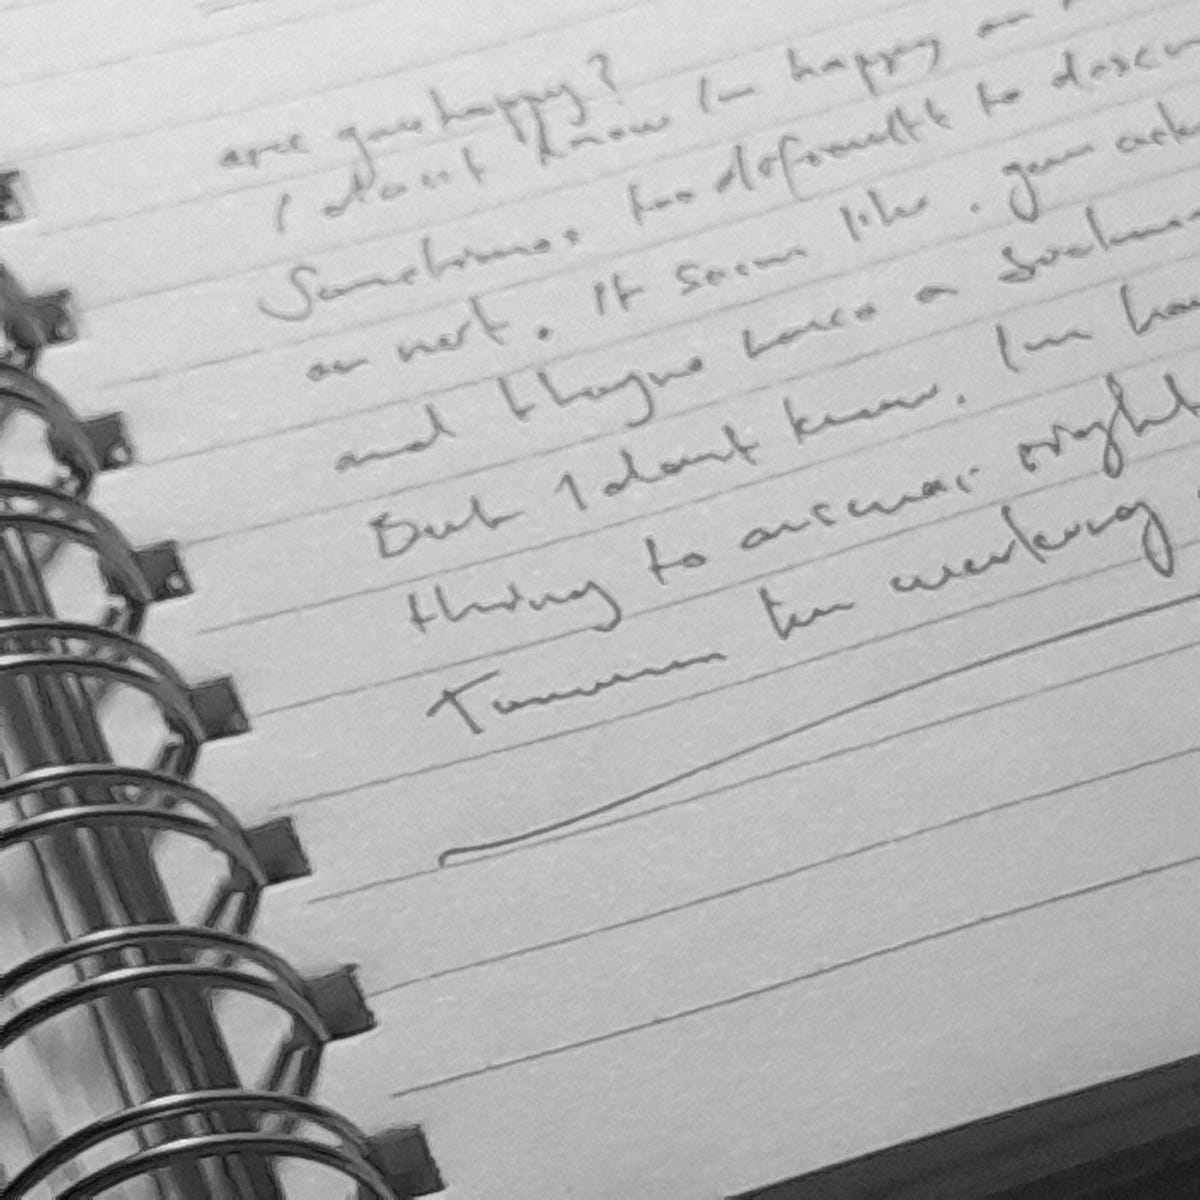 are you happy?
I dont know Im happy an
Sometimes, too difocultt to descu
or not. It seems like. you ask
and thayre have a
But I dont know. Im ha
thing to answar right
Tomorrow Im working